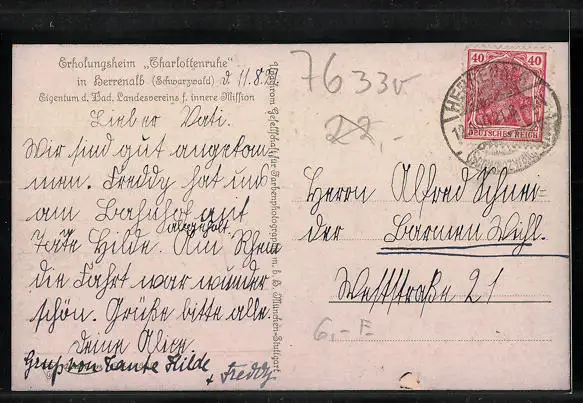 Erholungsheim „Charlottenruhe"
in Herrenalb (Schwarzwald) d. 11.8.21
Eigentum d. Bad. Landesvereins f. innere Mission
Lieber Vati.
Wir sind gut angekom-
men. Freddy hat uns
am Bahnhof mit
abgeholt.
Tate Hilde. Am Rhein
die Fahrt war wunder
schön. Grüße bitte alle.
Deine Alice.
Gruß von Tante Hilde
+ Freddy
Uvachrom Gesellschaft für Farbenphotographie m. b. H. München-Stuttgart
7633v
22,-
40 40
DEUTSCHES REICH
HERRENALB
(SCHWARZWALD)
Herrn Alfred Schnei-
der Barmen Wuhl.
Weststraße 21
6,- F